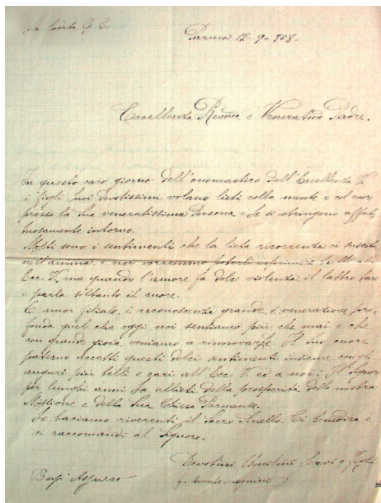 Parma 12-9-908.
Eccellenza Rev.ma e Venerat.mo Padre.
In questo caro giorno dell'onomastico dell'Eccellenza V.
i figli Suoi devotissimi volano lieti colla mente e col cuore
presso la Sua veneratissima Persona e Le si stringono affet-
tuosamente intorno.
Molti sono i sentimenti che la lieta ricorrenza ci suscita
nell'anima e noi vorremmo poterli esprimere
Ecc. V. ma quando l'amore fa dolce violenza il labbro tace
e parla soltanto il cuore.
È amor filiale, è riconoscenza grande, è venerazione pro-
fonda quel che oggi noi sentiamo più che mai e che
con grande gioia veniamo a rinnovarle. Il Suo cuore
paterno accetti questi dolci sentimenti insieme con gli
auguri più belli e cari all'Ecc. V. ed a noi: Il Signore
per lunghi anni La allieti della prosperità della nostra
Missione e della Sua Chiesa Parmense.
Le baciamo riverenti il Sacro Anello. Ci benedica e
ci raccomandi al Signore.
Devotissimi Umilissimi Servi e Figli